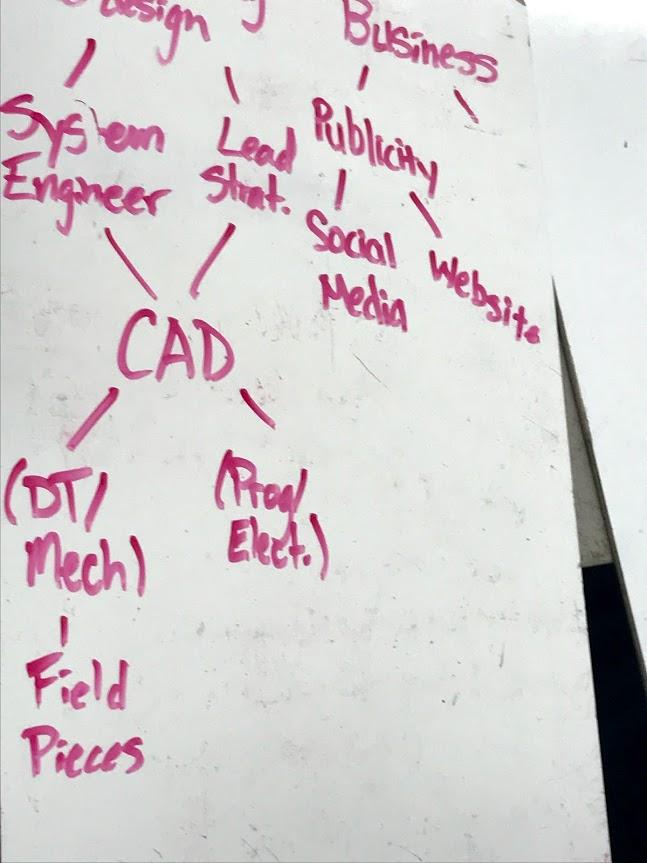 design
Business
System
Engineer
Lead
Strat.
Publicity
Social
Media
Website
CAD
(DT/
Mech)
(Prog/
Elect.)
Field
Pieces